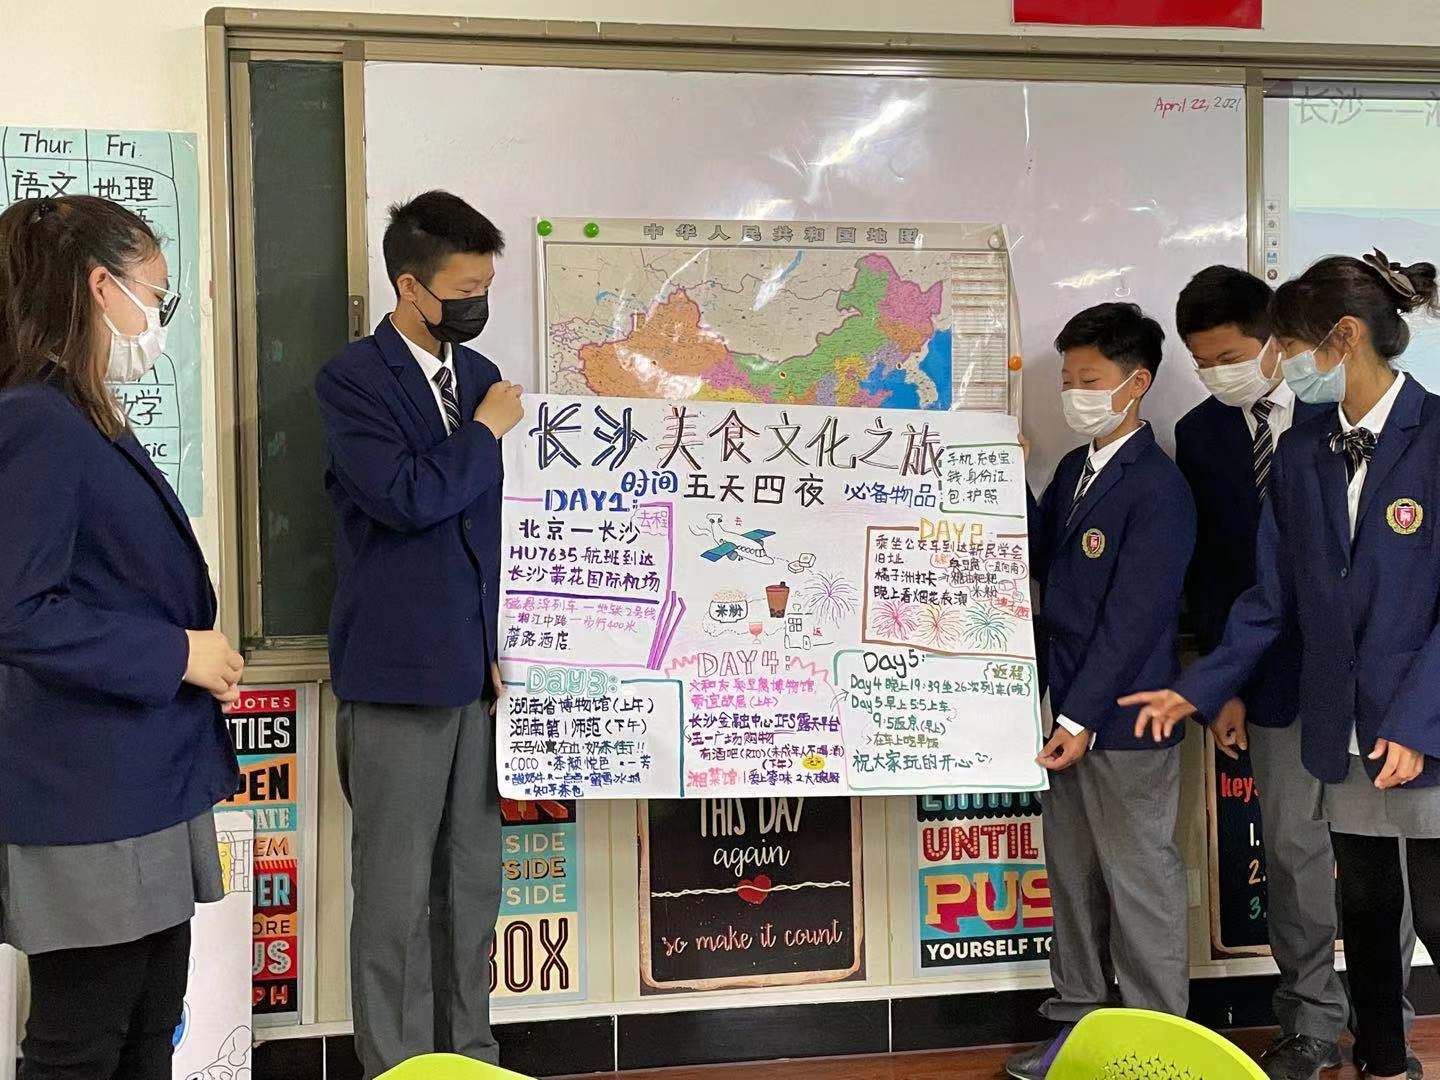 April 22, 2021
长沙——湘
Thur. Fri.
语文 地理
数学
中华人民共和国地图
长沙美食文化之旅
时间 五天四夜 必备物品:
手机.充电宝.
钱.身份证.
包.护照
DAY1:
去程
北京—长沙
HU7635航班到达
长沙黄花国际机场
磁悬浮列车—地铁2号线
—湘江中路—步行400米
麓路酒店.
去
米粉
返
DAY2:
乘坐公交车到达新民学会
旧址
臭豆腐(一直向南)
橘子洲打卡→糖油粑粑
晚上看烟花表演
米粉
Day3:
湖南省博物馆(上午)
湖南第1师范(下午)
天马公寓左边·奶茶佳行!!
·COCO ·茶颜悦色 ·一芳
·酸奶牛 ·一点点 ·蜜雪冰城
知乎茶也
DAY4:
火和友臭豆腐博物馆
贾谊故居(上午)
长沙金融中心IFS露天平台
五一广场购物
有酒吧(RIO)(未成年人不喝酒)
(下午)
湘菜馆 1爱上等味 2大碗厨
Day5:
返程
Day4晚上19:39坐26次列车(晚)
Day5早上5:55上车
9:5返京(早上)
→在车上吃早饭
祝大家玩的开心~
QUOTES
OPEN
SIDE
SIDE
SIDE
BOX
THIS DAY
again
so make it count
UNTIL
PUS
YOURSELF TO
keys
1.
2.
3.